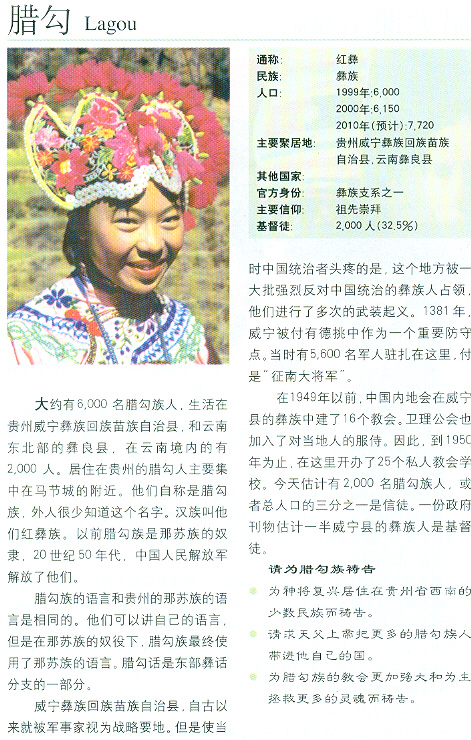 腊勾 Lagou
通称: 红彝
民族: 彝族
人口: 1999年:6,000
2000年:6,150
2010年(预计):7,720
主要聚居地: 贵州威宁彝族回族苗族
自治县,云南彝良县
其他国家:
官方身份: 彝族支系之一
主要信仰: 祖先崇拜
基督徒: 2,000人(32.5%)
大约有6,000 名腊勾族人,生活在
贵州威宁彝族回族苗族自治县,和云南
东北部的彝良县,在云南境内的有
2,000 人。居住在贵州的腊勾人主要集
中在马节城的附近。他们自称是腊勾
族,外人很少知道这个名字。汉族叫他
们红彝族。以前腊勾族是那苏族的奴
隶,20世纪50年代,中国人民解放军
解放了他们。
腊勾族的语言和贵州的那苏族的语
言是相同的。他们可以讲自己的语言,
但是在那苏族的奴役下,腊勾族最终使
用了那苏族的语言。腊勾话是东部彝话
分支的一部分。
威宁彝族回族苗族自治县,自古以
来就被军事家视为战略要地。但是使当
时中国统治者头疼的是,这个地方被一
大批强烈反对中国统治的彝族人占领,
他们进行了多次的武装起义。1381年,
威宁被付有德挑中作为一个重要防守
点。当时有5,600名军人驻扎在这里,付
是“征南大将军”。
在1949年以前,中国内地会在威宁
县的彝族中建了16个教会。卫理公会也
加入了对当地人的服侍。因此,到1950
年为止,在这里开办了25个私人教会学
校。今天估计有2,000名腊勾族人,或
者总人口的三分之一是信徒。一份政府
刊物估计一半威宁县的彝族人是基督
徒。
请为腊勾族祷告
为神将复兴居住在贵州省西南的
少数民族而祷告。
请求天父上帝把更多的腊勾族人
带进他自己的国。
为腊勾族的教会更加强大和为主
拯救更多的灵魂而祷告。